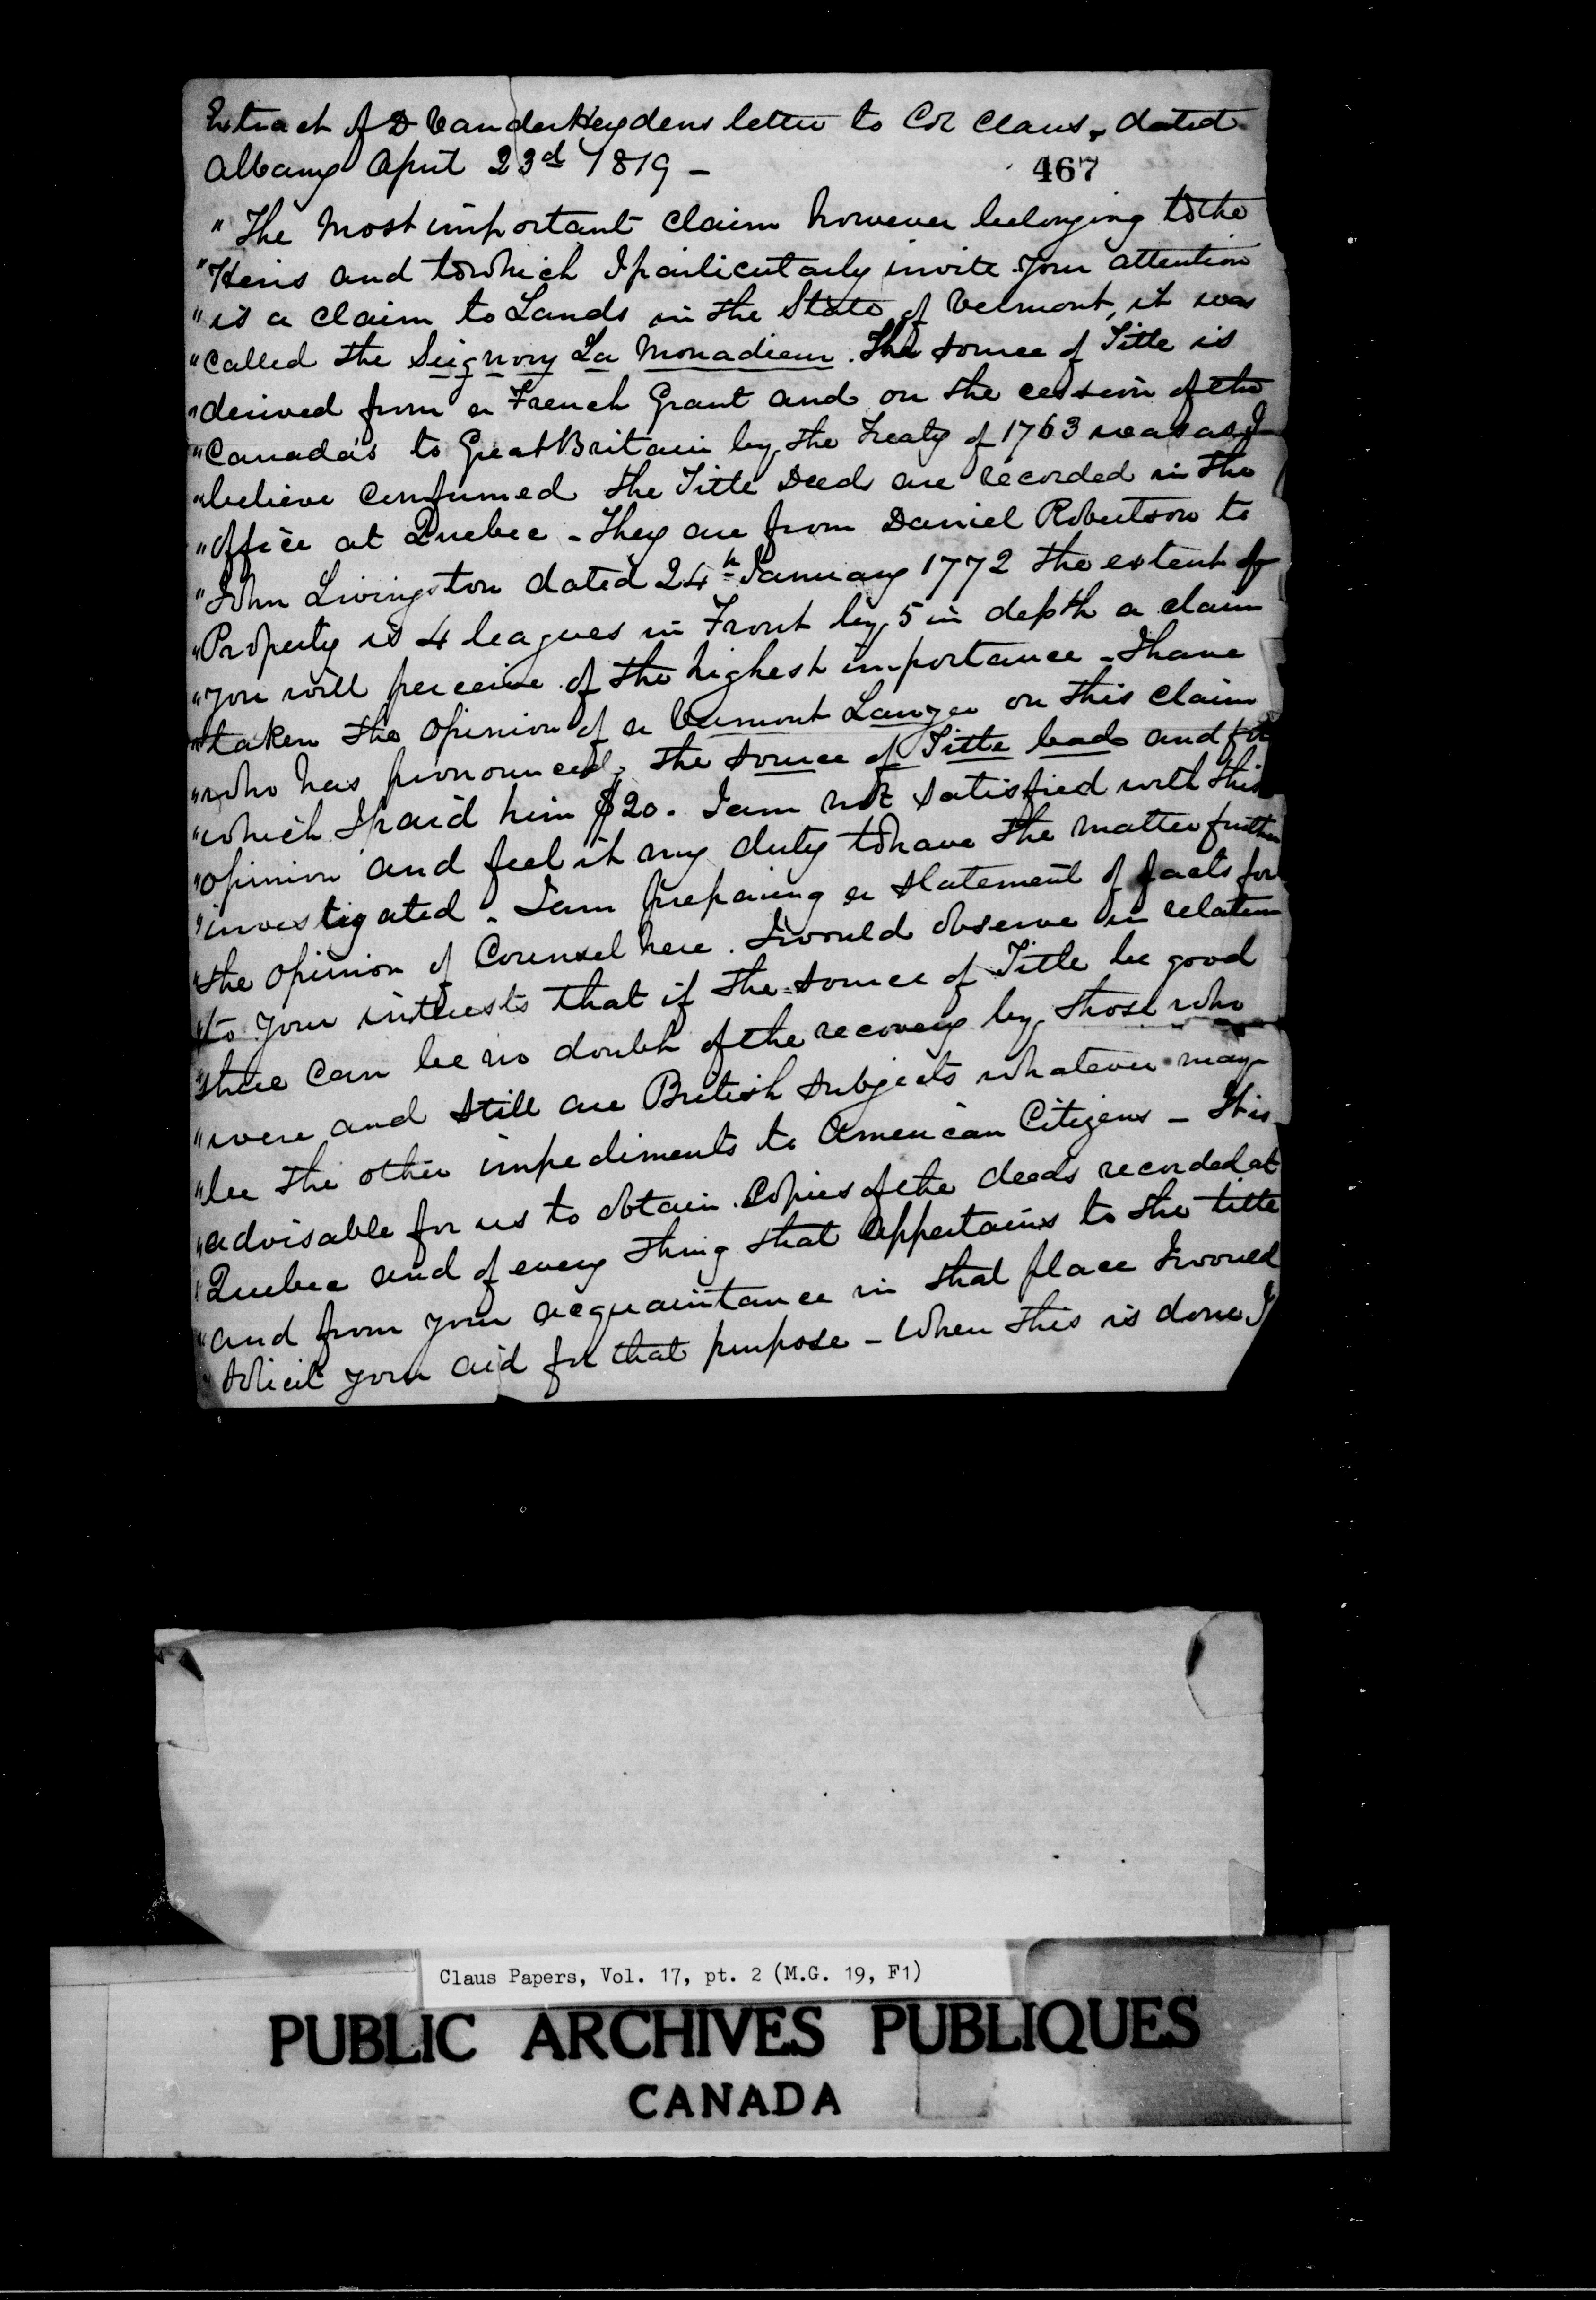 Extract of D VanderHeydens letter to Col Claus, dated
Albany April 23d 1819 -
467
"The Most important Claim however belonging to the
"Heirs and to which I particularly invite your attention
"is a Claim to Lands in the State of Vermont, it was
"Called the Seignory La Monadieur. The source of Title is
"derived from a French Grant and on the cession of the
"Canada's to Great Britain by the Treaty of 1763 was as I
"believe Confirmed the Title Deeds are recorded in the
"office at Quebec - They are from Daniel Robertson to
"John Livingston dated 24th January 1772 the extent of
"Property is 4 leagues in Front by 5 in depth a claim
"you will perceive of the highest importance - I have
"taken the Opinion of a Vermont Lawyer on this Claim
"who has pronounced, the source of Title bad and for
"which I paid him $20. I am not satisfied with this
"opinion and feel it my duty to have the matter further
"investigated. I am preparing a statement of facts for
"the opinion of Counsel here. I would observe in relation
"to your interests that if the source of Title be good
"there can be no doubt of the recovery by those who
"were and still are British subjects whatever may
"be the other impediments to American Citizens - It is
"advisable for us to obtain Copies of the deeds recorded at
"Quebec and of every thing that appertains to the title
"and from your acquaintance in that place I would
"solicit your aid for that purpose - When this is done I
Claus Papers, Vol. 17, pt. 2 (M.G. 19, F1)
PUBLIC ARCHIVES PUBLIQUES
CANADA